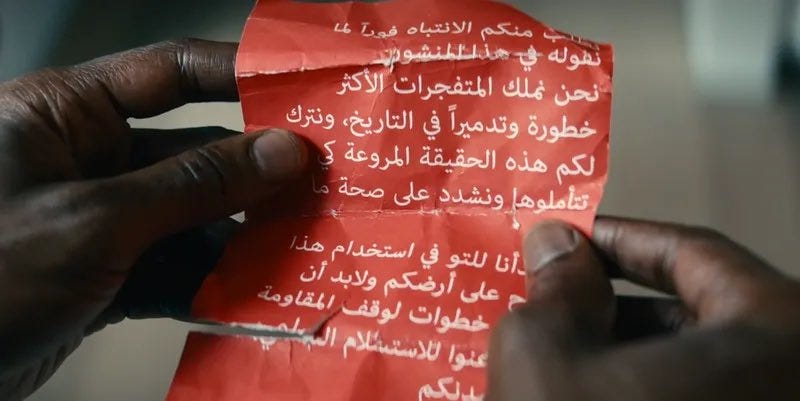 منكم الانتباه فوراً لما
نقوله في هذا المنشور
نحن نملك المتفجرات الأكثر
خطورة وتدميراً في التاريخ، ونترك
لكم هذه الحقيقة المروعة كي
تتأملوها ونشدد على صحة ما
للتو في استخدام هذا
على أرضكم ولابد أن
خطوات لوقف المقاومة
للاستسلام